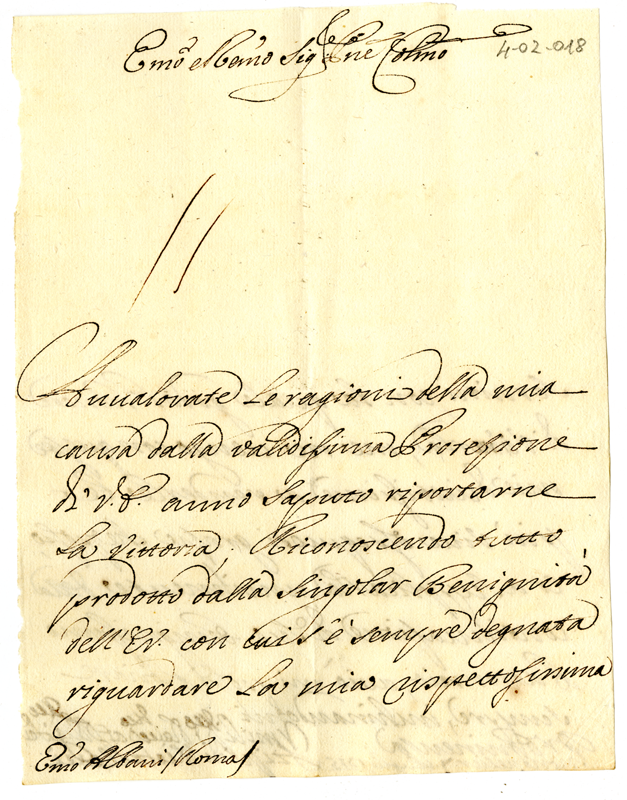 Emo̅ e Remo̅ Sig.re Pne̅ Colmo̅
4-02-018
Auualorate le ragioni della mia
causa dalla validissima Protezione
di V.E. anno saputo riportarne
la vittoria; Riconoscendo tutto
prodotto dalla singolar Benignità
dell'EV. con cui s'è sempre degnata
riguardare la mia rispettosissima
Emo̅ Albani / Roma /